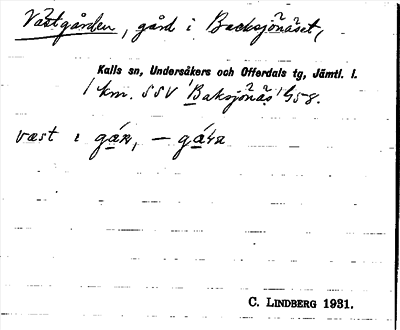 Västgården, gård i Backsjönäset,
Kalls sn, Undersåkers och Offerdals tg, Jämtl. l.
1 km. SSV Baksjönäs G58.
väst i gán, — gána
C. LINDBERG 1931.